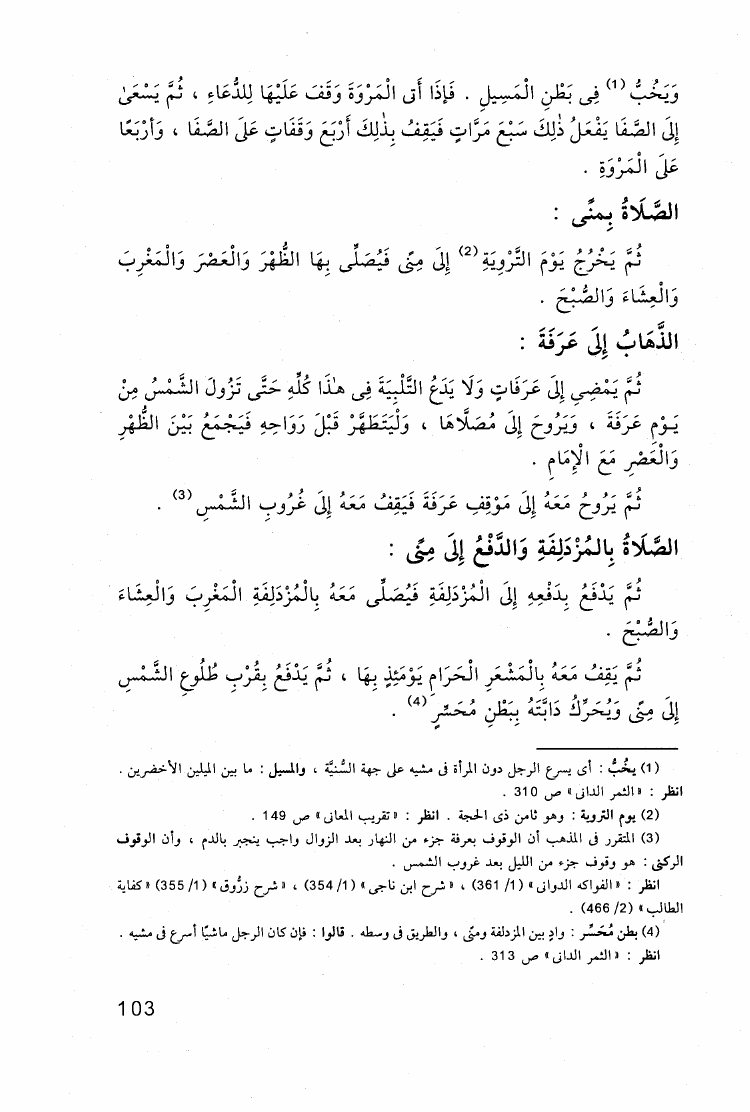 وَيَخُبُّ (1) فِى بَطْنِ الْمَسِيلِ . فَإِذَا أَتَى الْمَرْوَةَ وَقَفَ عَلَيْهَا لِلدُّعَاءِ ، ثُمَّ يَسْعَىٰ
إِلَى الصَّفَا يَفْعَلُ ذٰلِكَ سَبْعَ مَرَّاتٍ فَيَقِفُ بِذٰلِكَ أَرْبَعَ وَقَفَاتٍ عَلَى الصَّفَا ، وَأَرْبَعًا
عَلَى الْمَرْوَةِ .
الصَّلَاةُ بِمِنًى :
ثُمَّ يَخْرُجُ يَوْمَ التَّرْوِيَةِ (2) إِلَى مِنًى فَيُصَلِّى بِهَا الظُّهْرَ وَالْعَصْرَ وَالْمَغْرِبَ
وَالْعِشَاءَ وَالصُّبْحَ .
الذَّهَابُ إِلَى عَرَفَةَ :
ثُمَّ يَمْضِى إِلَى عَرَفَاتٍ وَلَا يَدَعُ التَّلْبِيَةَ فِى هٰذَا كُلِّهِ حَتَّى تَزُولَ الشَّمْسُ مِنْ
يَوْمِ عَرَفَةَ ، وَيَرُوحَ إِلَى مُصَلَّاهَا ، وَلْيَتَطَهَّرْ قَبْلَ رَوَاحِهِ فَيَجْمَعُ بَيْنَ الظُّهْرِ
وَالْعَصْرِ مَعَ الْإِمَامِ .
ثُمَّ يَرُوحُ مَعَهُ إِلَى مَوْقِفِ عَرَفَةَ فَيَقِفُ مَعَهُ إِلَى غُرُوبِ الشَّمْسِ (3) .
الصَّلَاةُ بِالْمُزْدَلِفَةِ وَالدَّفْعُ إِلَى مِنًى :
ثُمَّ يَدْفَعُ بِدَفْعِهِ إِلَى الْمُزْدَلِفَةِ فَيُصَلِّى مَعَهُ بِالْمُزْدَلِفَةِ الْمَغْرِبَ وَالْعِشَاءَ
وَالصُّبْحَ .
ثُمَّ يَقِفُ مَعَهُ بِالْمَشْعَرِ الْحَرَامِ يَوْمَئِذٍ بِهَا ، ثُمَّ يَدْفَعُ بِقُرْبِ طُلُوعِ الشَّمْسِ
إِلَى مِنًى وَيُحَرِّكُ دَابَّتَهُ بِبَطْنِ مُحَسِّرٍ (4) .
(1) يخُبُّ : أى يسرع الرجل دون المرأة فى مشيه على جهة السُّنيَّة ، والمسيل : ما بين الميلين الأخضرين .
انظر : « الثمر الدانى » ص 310 .
(2) يوم التروية : وهو ثامن ذى الحجة . انظر : « تقريب المعانى » ص 149 .
(3) المتقرر فى المذهب أن الوقوف بعرفة جزء من النهار بعد الزوال واجب ينجبر بالدم ، وأن الوقوف
الركنى : هو وقوف جزء من الليل بعد غروب الشمس .
انظر : « الفواكه الدوانى » (1/ 361) ، « شرح ابن ناجى » (1/ 354) ، « شرح زرُّوق » (1/ 355) « كفاية
الطالب » (2/ 466) .
(4) بطن مُحَسِّر : وادٍ بين المزدلفة ومنًى ، والطريق فى وسطه . قالوا : فإن كان الرجل ماشيًا أسرع فى مشيه .
انظر : « الثمر الدانى » ص 313 .
103